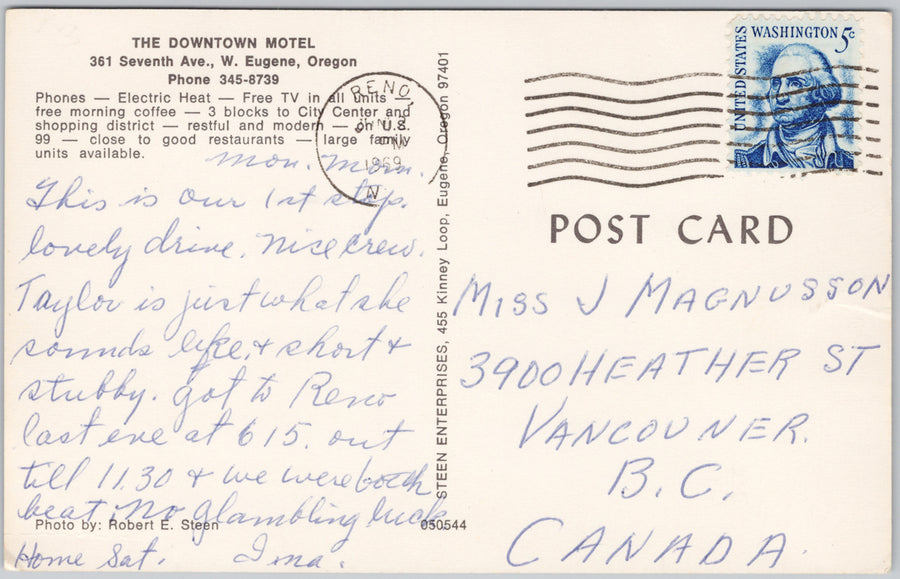 THE DOWNTOWN MOTEL
361 Seventh Ave., W. Eugene, Oregon
Phone 345-8739
Phones — Electric Heat — Free TV in all units —
free morning coffee — 3 blocks to City Center and
shopping district — restful and modern — on U.S.
99 — close to good restaurants — large family
units available.
Mon. Morn.
This is our 1st stop.
lovely drive. Nice crew.
Taylor is just what she
sounds like, & short &
stubby. got to Reno
last eve at 6 15. out
till 11.30 & we were both
beat. No glambling luck
Photo by: Robert E. Steen
050544
Home Sat. Ima.
STEEN ENTERPRISES, 455 Kinney Loop, Eugene, Oregon 97401
RENO,
1969
N
UNITED STATES
WASHINGTON 5c
POST CARD
MISS J MAGNUSSON
3900 HEATHER ST
VANCOUVER.
B.C.
CANADA.